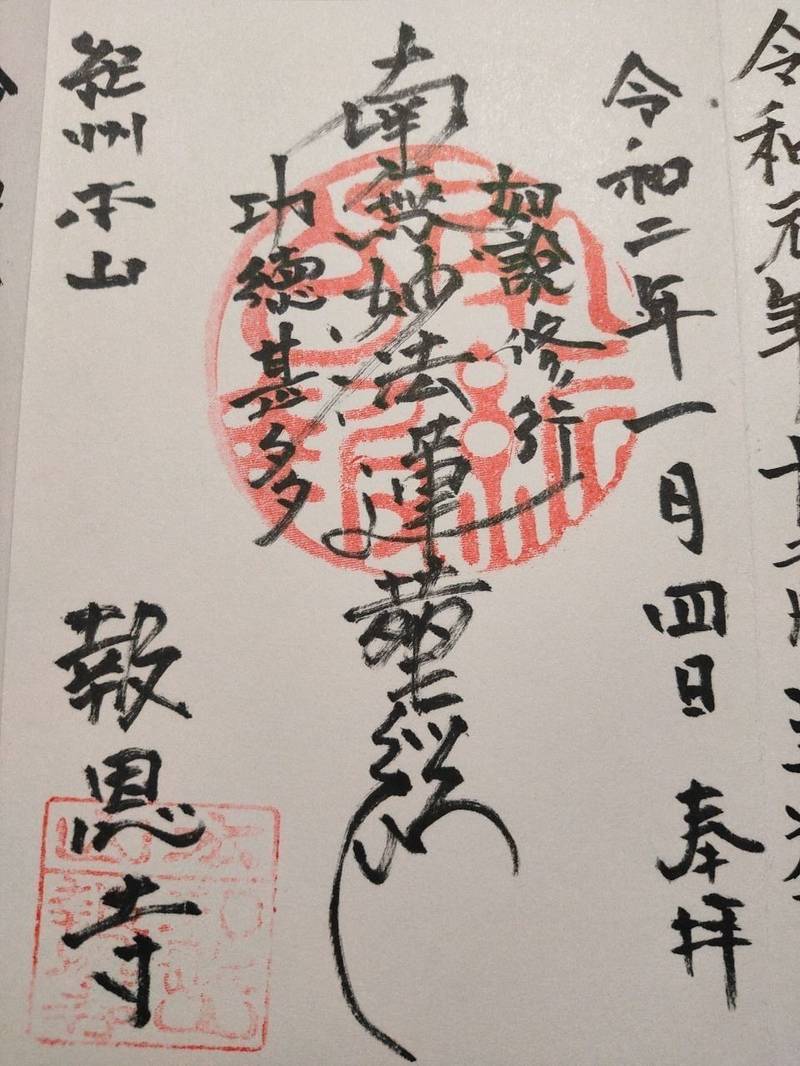 令和元年十二月三
令和二年一月四日 奉拝
如説修行
南無妙法蓮華経
功徳甚多
紀州本山
報恩寺